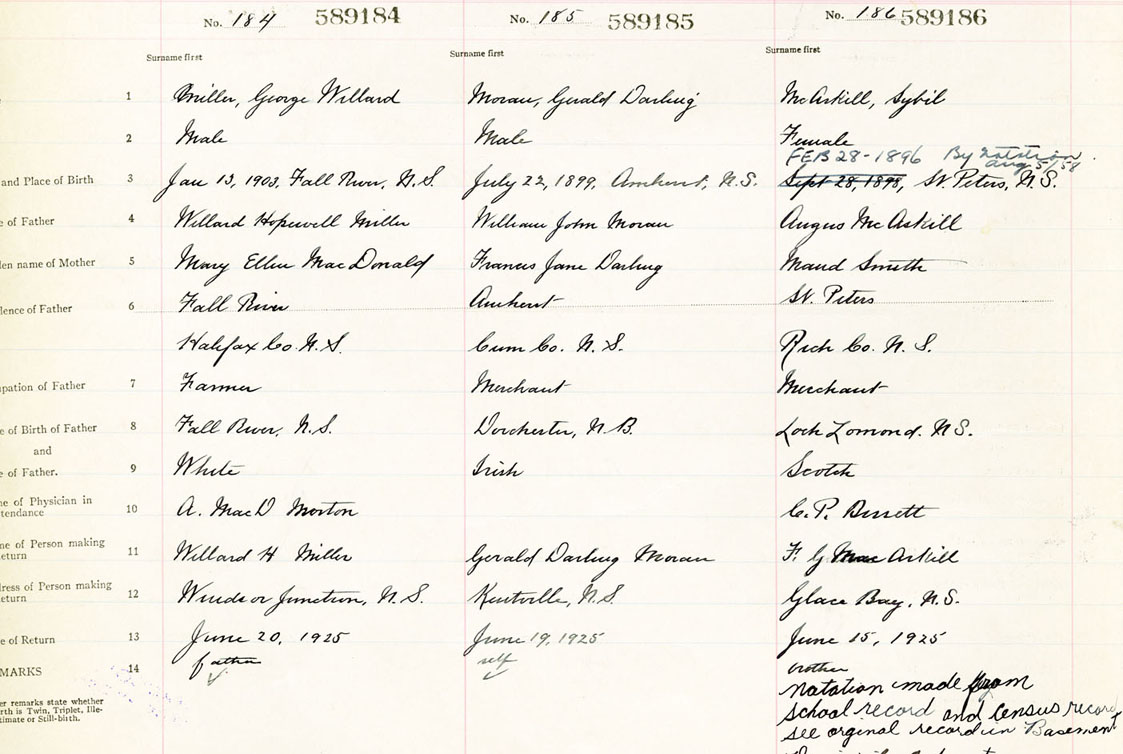 No. 184 589184 No. 185 589185 No. 186 589186
Surname first Surname first Surname first
1 Miller, George Willard Moran, Gerald Darling McAskill, Sybil
2 Male Male Female
FEB 28-1896 By notation
Aug 5/58
and Place of Birth 3 Jan 13, 1903, Fall River, N.S. July 22, 1899, Amherst, N.S. Sept 28, 1898, St. Peters, N.S.
e of Father 4 Willard Hopewell Miller William John Moran Angus McAskill
den name of Mother 5 Mary Ellen MacDonald Francis Jane Darling Maud Smith
dence of Father 6 Fall River Amherst St. Peters
Halifax Co. N.S. Cum Co. N.S. Rich Co. N.S.
upation of Father 7 Farmer Merchant Merchant
e of Birth of Father 8 Fall River, N.S. Dorchester, N.B. Loch Lomond. N.S.
and
e of Father. 9 White Irish Scotch
ne of Physician in
tendance 10 A. MacD Morton C.P. Bissett
me of Person making
eturn 11 Willard H Miller Gerald Darling Moran F. G MacAskill
dress of Person making
eturn 12 Windsor Junction, N.S. Kentville, N.S. Glace Bay, N.S.
e of Return 13 June 20, 1925 June 19, 1925 June 15, 1925
MARKS 14 father self brother
notation made from
school record and Census record
see orginal record in Basement
er remarks state whether
rth is Twin, Triplet, Ille-
timate or Still-birth.